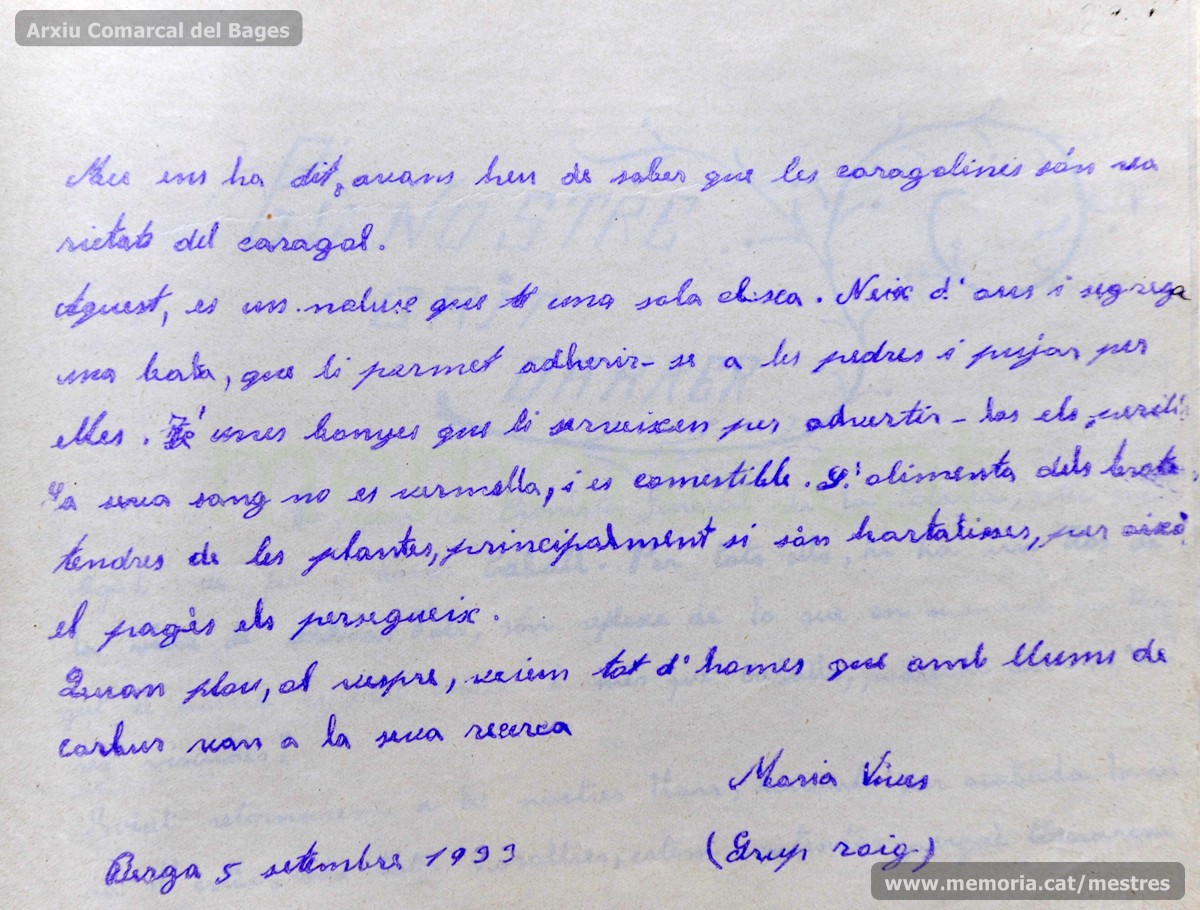 Arxiu Comarcal del Bages
ens ha dit, avans heu de saber que les caragolines són va
rietats del caragol.
Aquest, es un moluxe que té una sola clisca. Neix d'ous i segrega
una bava, que li permet adherir-se a les pedres i pujar per
elles. Té unes banyes que li serveixen per advertir-los els perills
La seva sang no es vermella, i es comestible. S'alimenta dels brots
tendres de les plantes, principalment si són hortalisses, per aixó
el pagès els persegueix.
Quan plou, al vespre, veiem tot d'homes que amb llums de
carbur van a la seva recerca
Maria Vives
Berga 5 setembre 1933 (Grup roig)
EL NOSTRE
DARRER
www.memoria.cat/mestres